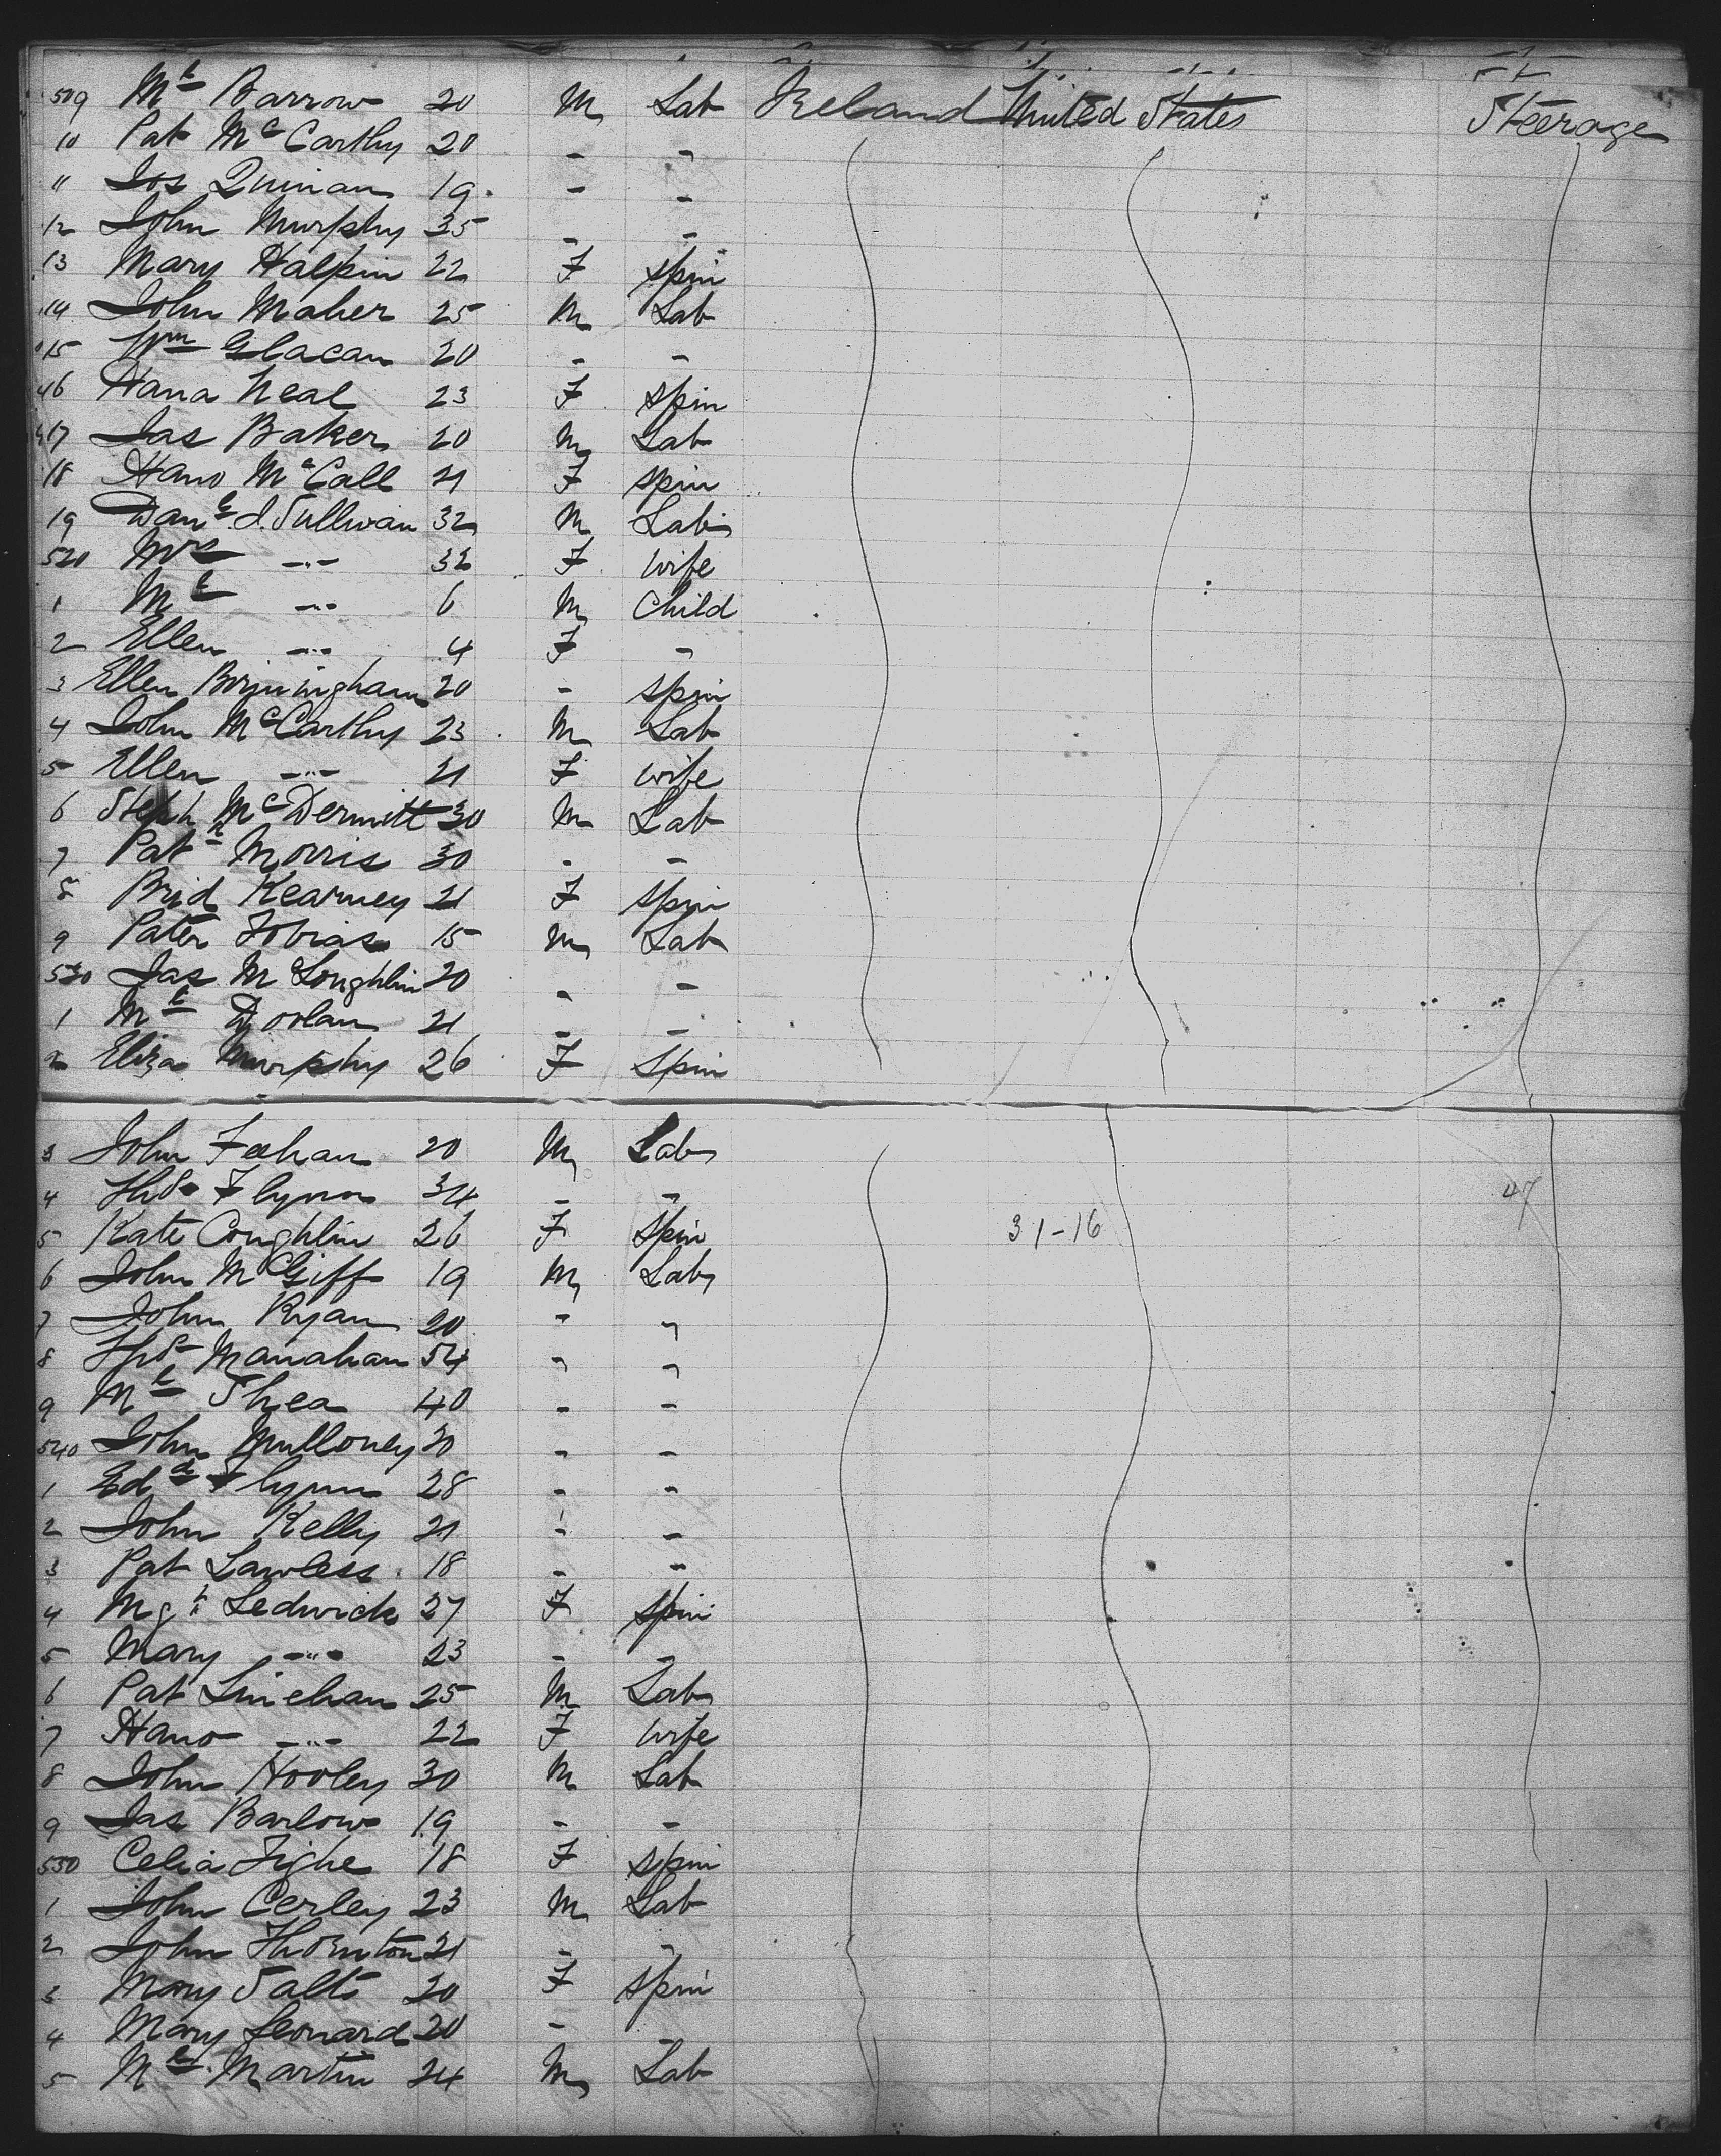 509 Ml Barrow 20 M Lab Ireland United States Steerage
10 Pat McCarthy 20 - -
11 Jos Quinan 19 - -
12 John Murphy 35 - -
13 Mary Halpin 22 F Spin
14 John Maher 25 M Lab
15 Wm Glacan 20 - -
16 Hana Neal 23 F Spin
17 Jas Baker 20 M Lab
18 Hano McCall 21 F Spin
19 Danl J. Sullivan 32 M Lab
520 Mrs -"- 32 F Wife
1 Ml -"- 6 M Child
2 Ellen -"- 4 F -
3 Ellen Birmingham 20 - Spin
4 John McCarthy 23 M Lab
5 Ellen -"- 21 F Wife
6 Steph McDermitt 30 M Lab
7 Patk Morris 30 - -
8 Brid Kearney 21 F Spin
9 Pater Tobias 15 M Lab
530 Jas McLoughlin 20 - -
1 Ml Doolan 21 - -
2 Eliza Murphy 26 F Spin
3 John Feehan 20 M Lab
4 Thos Flynn 34 - - 47
5 Kate Coughlin 26 F Spin 31-16
6 John McGiff 19 M Lab
7 John Ryan 20 - -
8 Thos Manahan 54 - -
9 Ml Shea 40 - -
540 John Mulloney 30 - -
1 Edd Flynn 28 - -
2 John Kelly 21 - -
3 Pat Lawless 18 - -
4 Mgt Ledwick 27 F Spin
5 Mary -"- 23 - -
6 Pat Linehan 25 M Lab
7 Hano -"- 22 F Wife
8 John Hooley 30 M Lab
9 Jas Barlow 19 - -
550 Celia Tighe 18 F Spin
1 John Cerley 23 M Lab
2 John Thornton 21 - -
3 Mary Salt 20 F Spin
4 Mary Leonard 20 - -
5 Ml Martin 24 M Lab